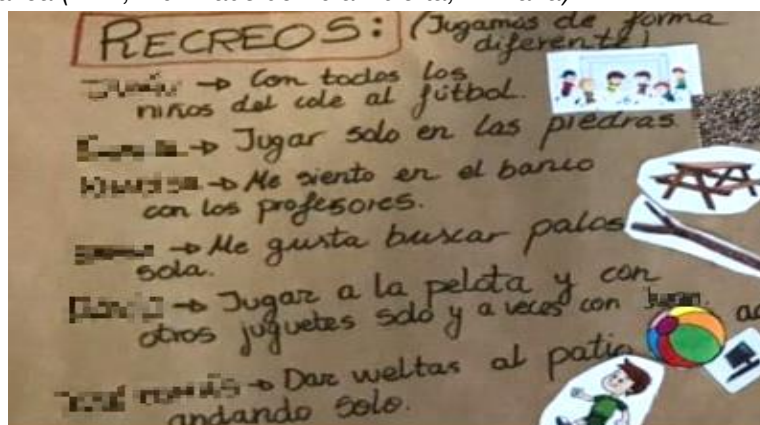 RECREOS: (Jugamos de forma
diferente)
→ Con todos los
niños del cole al fútbol.
→ Jugar solo en las piedras.
→ Me siento en el banco
con los profesores.
→ Me gusta buscar palos
sola.
→ Jugar a la pelota y con
otros juguetes solo y a veces con
→ Dar vueltas al patio
andando solo.